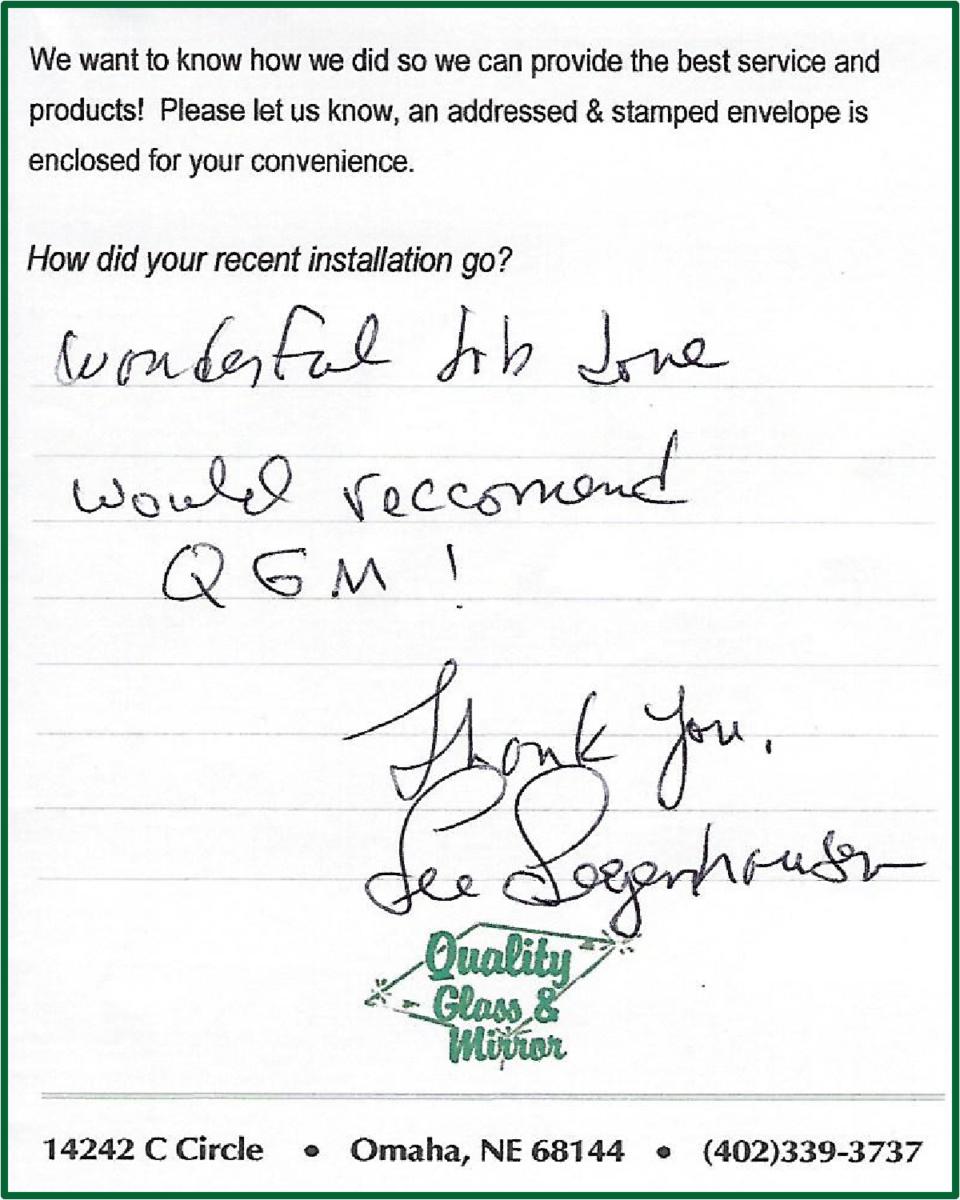 We want to know how we did so we can provide the best service and
products! Please let us know, an addressed & stamped envelope is
enclosed for your convenience.
How did your recent installation go?
Wonderful Job Done
would reccomend
QGM!
Thank You.
Lee
Quality
Glass &
Mirror
14242 C Circle • Omaha, NE 68144 • (402)339-3737